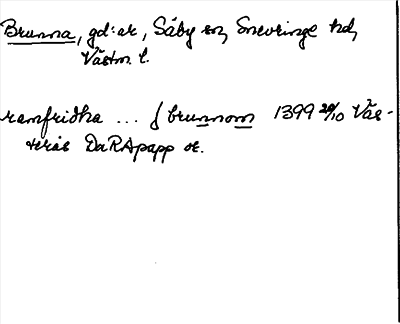 Brunna, gd:ar, Säby sn, Snevringe hd,
Västm l.
ramfridha ... j brunnom 1399 29/10 Väs-
terås DaRApapp or.